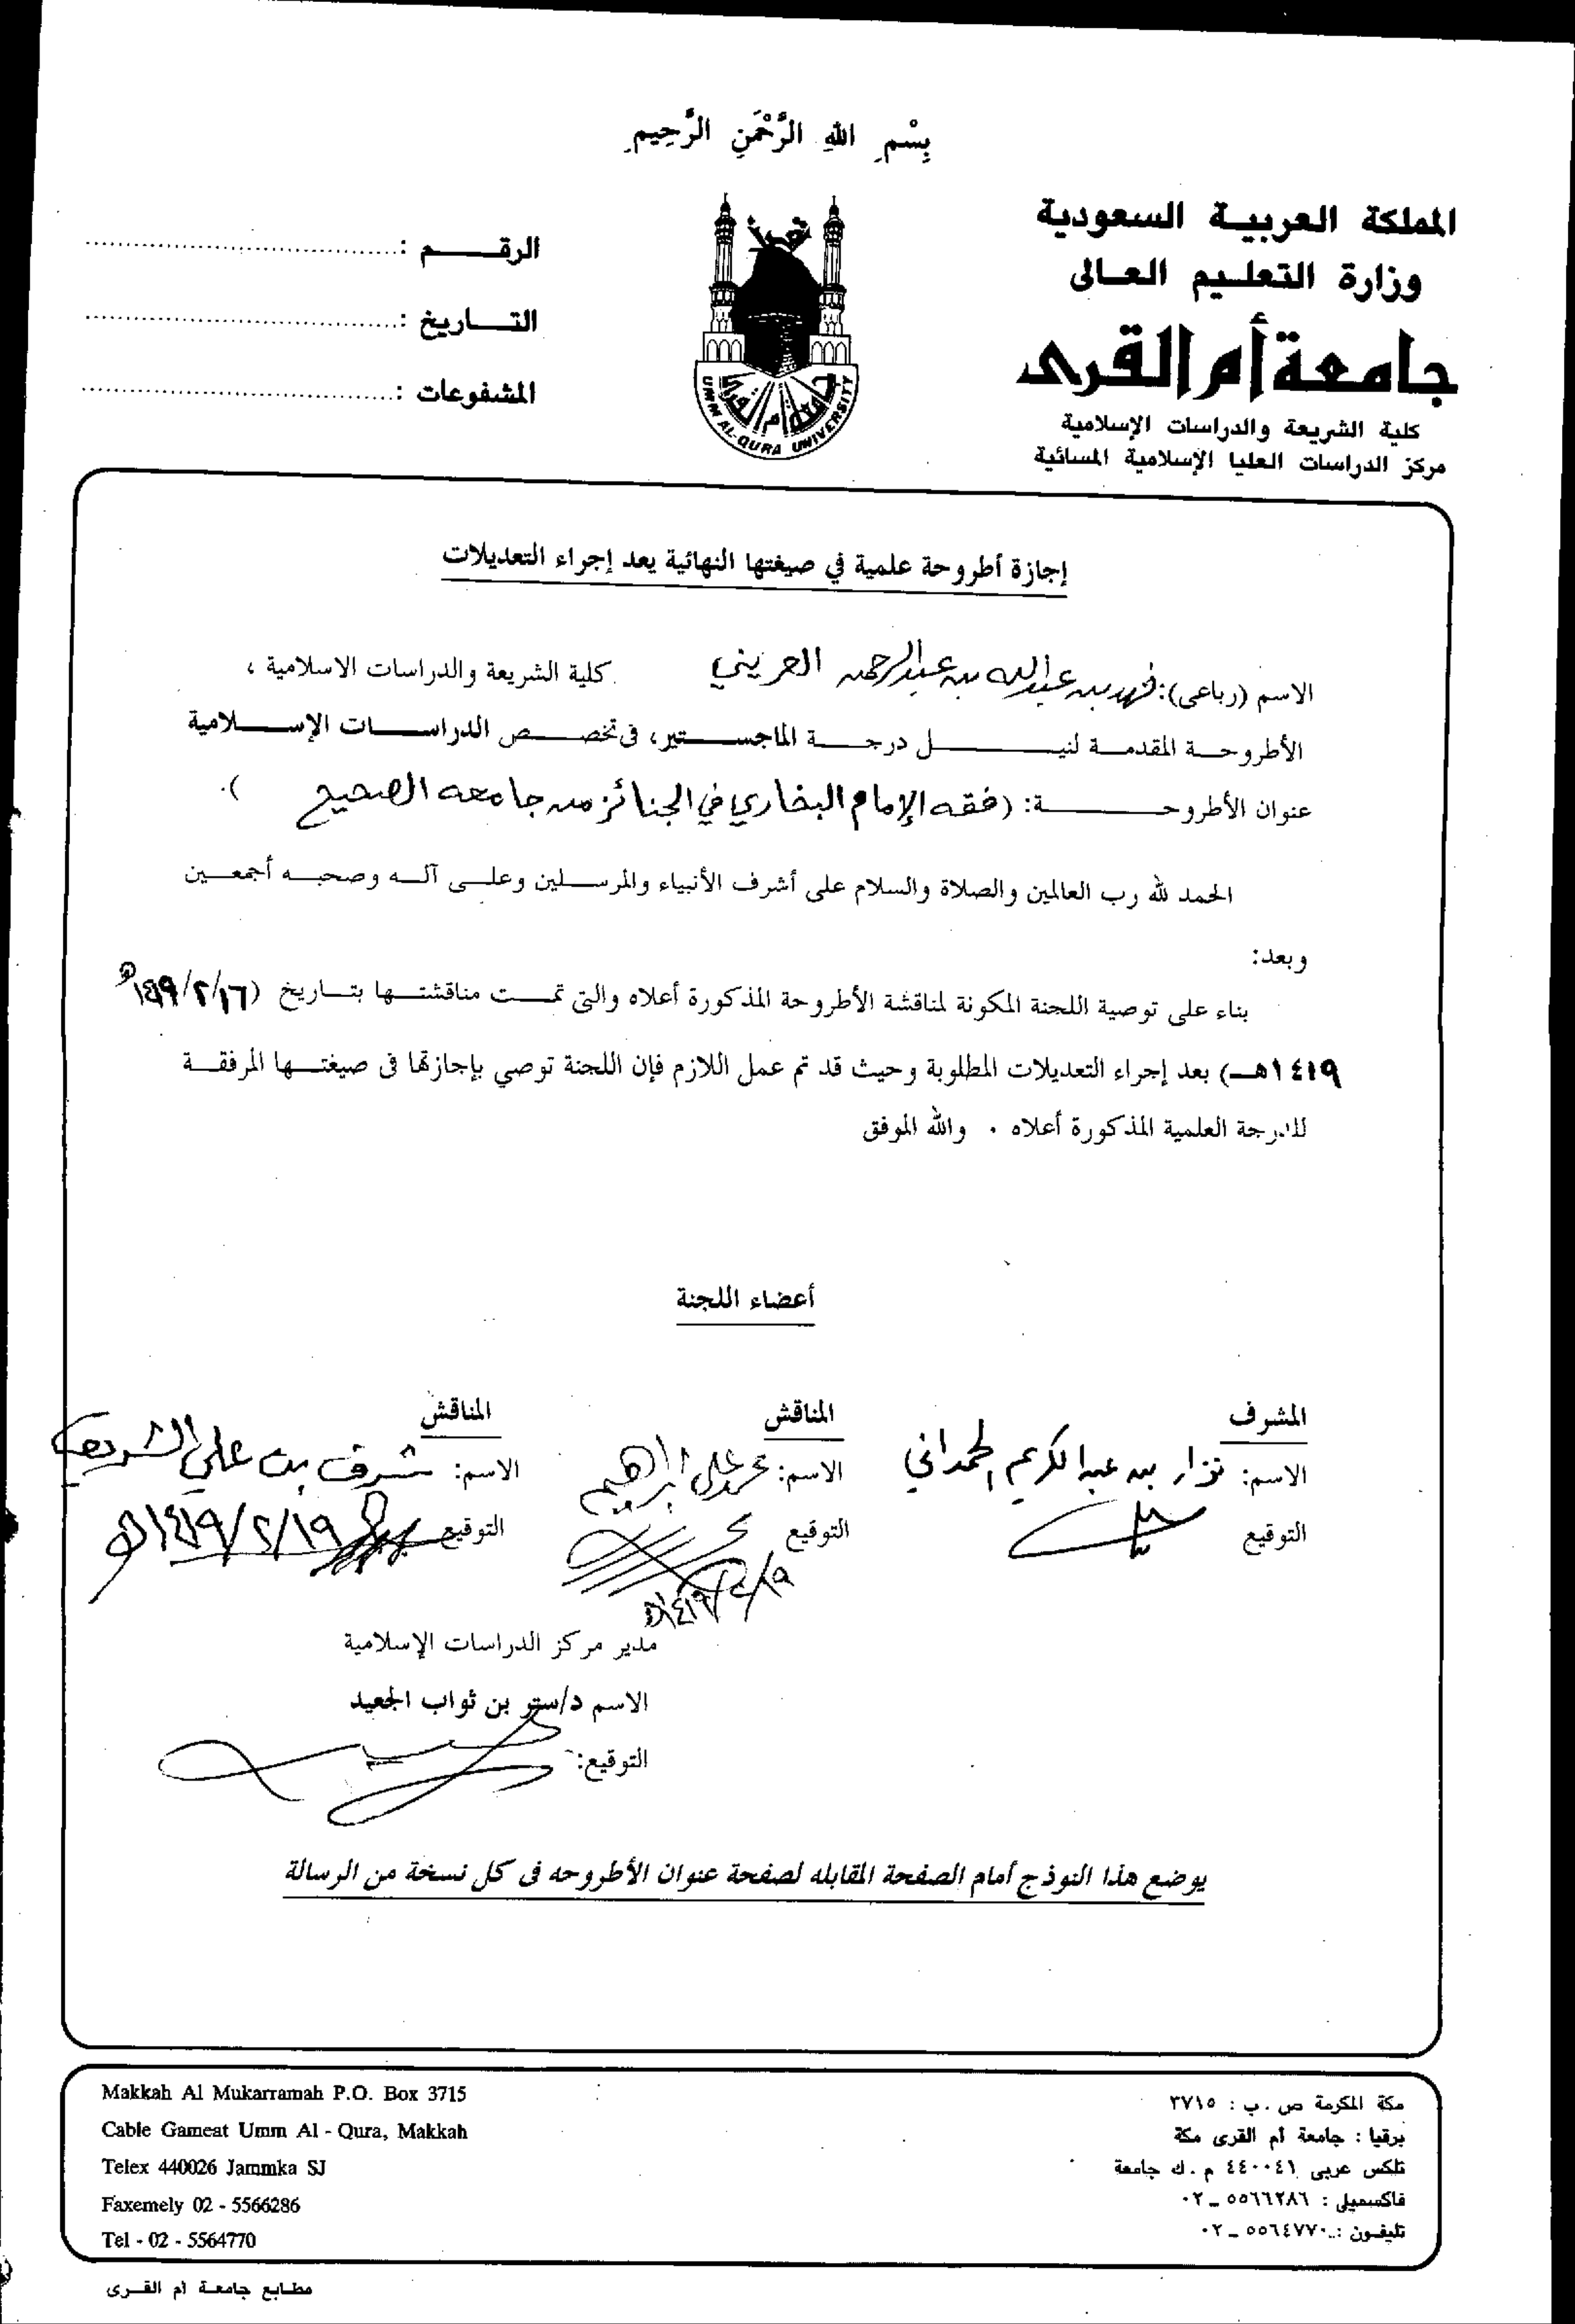 بِسْمِ اللهِ الرَّحْمَنِ الرَّحِيمِ
المملكة العربية السعودية
وزارة التعليم العالى
جامعة أم القرى
كلية الشريعة والدراسات الإسلامية
مركز الدراسات العليا الإسلامية المسائية
الرقم :
التاريخ :
المشفوعات :
جامعة أم القرى
UMM AL-QURA UNIVERSITY
إجازة أطروحة علمية في صيغتها النهائية يعد إجراء التعديلات
الاسم (رباعى): فهد بن عبدالله بن عبدالرحمن العريني كلية الشريعة والدراسات الاسلامية ،
الأطروحة المقدمة لنيل درجة الماجستير، فى تخصص الدراسات الإسلامية
عنوان الأطروحة: (فقه الإمام البخاري في الجنائز من جامعه الصحيح ).
الحمد لله رب العالمين والصلاة والسلام على أشرف الأنبياء والمرسلين وعلى آله وصحبه أجمعين
وبعد:
بناء على توصية اللجنة المكونة لمناقشة الأطروحة المذكورة أعلاه والتى تمت مناقشتها بتاريخ (١٤١٩/٢/١٦هـ
١٤١٩هـ) بعد إجراء التعديلات المطلوبة وحيث قد تم عمل اللازم فإن اللجنة توصي بإجازتها فى صيغتها المرفقة
للدرجة العلمية المذكورة أعلاه . والله الموفق
أعضاء اللجنة
المشرف المناقش المناقش
الاسم: نزار بن عبدالكريم الحمداني الاسم: محمد علي إبراهيم الاسم: شرف بن علي الشريف
التوقيع التوقيع التوقيع ١٤١٩/٢/١٩هـ
١٤١٩/٢/١٩هـ
مدير مركز الدراسات الإسلامية
الاسم د/ستر بن ثواب الجعيد
التوقيع:
يوضع هذا النوذج أمام الصفحة المقابله لصفحة عنوان الأطروحه فى كل نسخة من الرسالة
مكة المكرمة ص . ب : ٣٧١٥
برقيا : جامعة أم القرى مكة
تلكس عربى ٤٤٠٠٤١ م . ك جامعة
فاكسميلى : ٥٥٦٦٢٨٦ – ٠٢
تليفون : ٥٥٦٤٧٧٠ – ٠٢
Makkah Al Mukarramah P.O. Box 3715
Cable Gameat Umm Al - Qura, Makkah
Telex 440026 Jammka SJ
Faxemely 02 - 5566286
Tel - 02 - 5564770
مطابع جامعة أم القرى